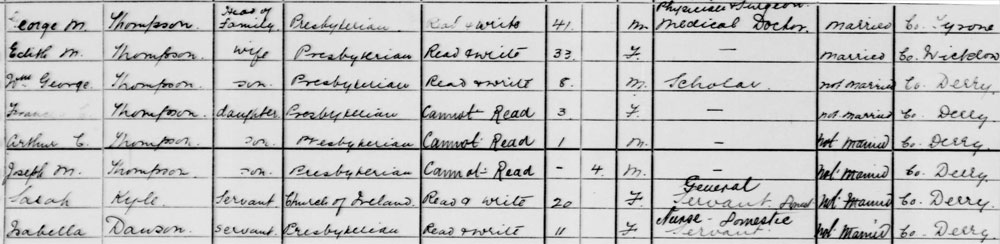 George M. Thompson Head of Family Presbyterian Read & Write 41 M. Physician & Surgeon Medical Doctor Married Co. Tyrone
Edith M. Thompson. wife Presbyterian Read & write 33 F. — married Co. Wicklow
Wm George. Thompson. son. Presbyterian Read & write 8 M. Scholar not Married Co. Derry.
Thompson. daughter Presbyterian Cannot Read 3 F. — not married Co. Derry
Arthur C. Thompson. son. Presbyterian Cannot Read 1 M. — not Married Co. Derry.
Joseph M. Thompson. son. Presbyterian Cannot Read – 4. M. — not Married Co. Derry
Sarah Kyle. Servant Church of Ireland. Read & Write 20 F. General Servant not Married Co. Derry.
Isabella Dawson. servant. Presbyterian Read & write 11 F. Nurse - Domestic Servant not Married Co. Derry